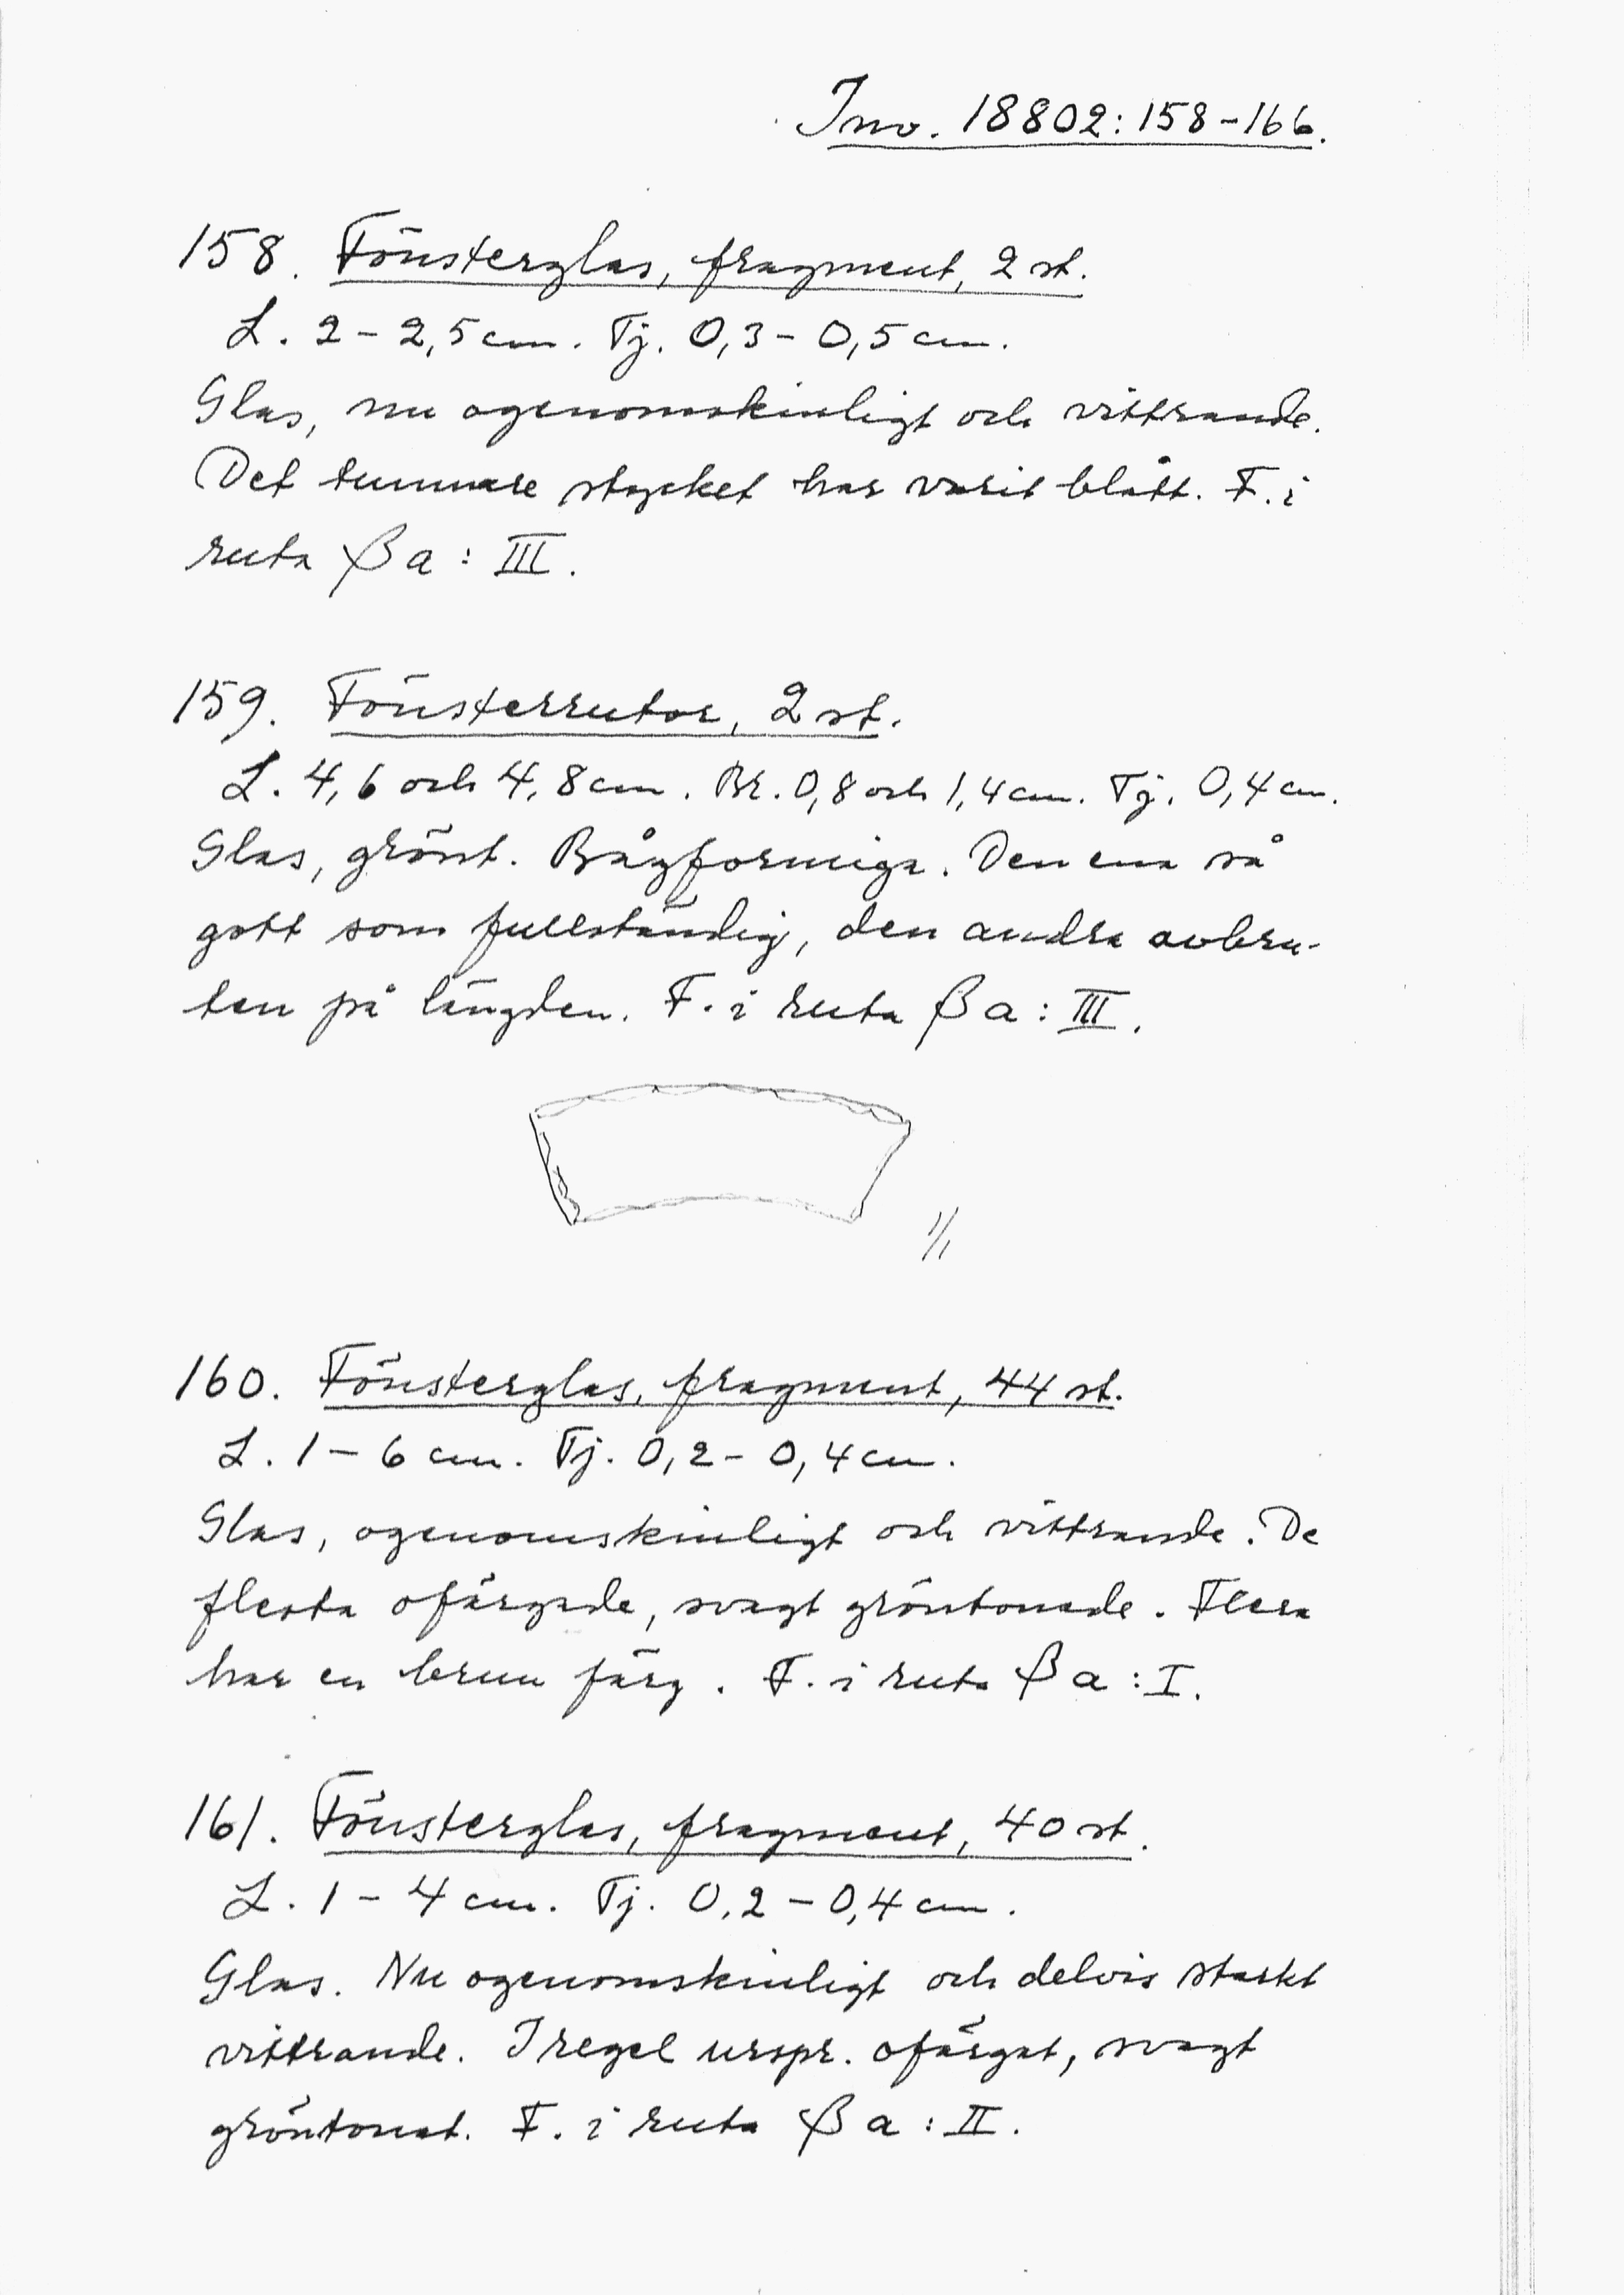 Inv. 18802:158-166.
158. Fönsterglas, fragment, 2 st.
L. 2-2,5 cm. Tj. 0,3-0,5 cm.
Glas, nu ogenomskinligt och vittrande.
Det tunnare stycket har varit blått. F. i
ruta βa: III.
159. Fönsterrutor, 2 st.
L. 4,6 och 4,8 cm. Br. 0,8 och 1,4 cm. Tj. 0,4 cm.
Glas, grönt. Bågformiga. Den ena så
gott som fullständig, den andra avbru-
ten på längden. F. i ruta βa: III.
1/1
160. Fönsterglas, fragment, 44 st.
L. 1-6 cm. Tj. 0,2-0,4 cm.
Glas, ogenomskinligt och vittrande. De
flesta ofärgade, svagt gröntonade. Flera
har en brun färg. F. i ruta βa: I.
161. Fönsterglas, fragment, 40 st.
L. 1-4 cm. Tj. 0,2-0,4 cm.
Glas. Nu ogenomskinligt och delvis starkt
vittrande. I regel urspr. ofärgat, svagt
gröntonat. F. i ruta βa: II.